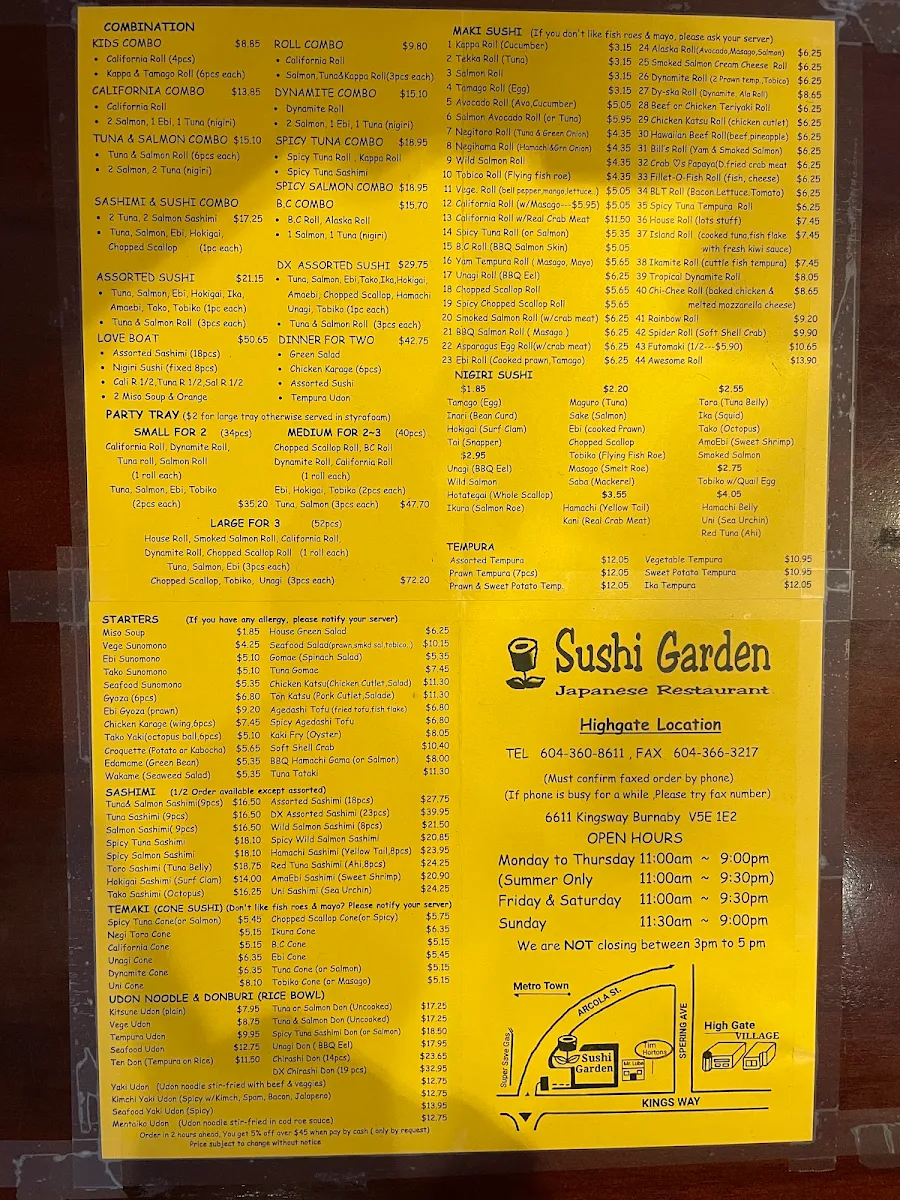 COMBINATION
KIDS COMBO $8.85
• California Roll (4pcs)
• Kappa & Tamago Roll (6pcs each)
CALIFORNIA COMBO $13.85
• California Roll
• 2 Salmon, 1 Ebi, 1 Tuna (nigiri)
TUNA & SALMON COMBO $15.10
• Tuna & Salmon Roll (6pcs each)
• 2 Salmon, 2 Tuna (nigiri)
SASHIMI & SUSHI COMBO
• 2 Tuna, 2 Salmon Sashimi $17.25
• Tuna, Salmon, Ebi, Hokigai,
Chopped Scallop (1pc each)
ASSORTED SUSHI $21.15
• Tuna, Salmon, Ebi, Hokigai, Ika,
Amaebi, Tako, Tobiko (1pc each)
• Tuna & Salmon Roll (3pcs each)
LOVE BOAT $50.65
• Assorted Sashimi (18pcs)
• Nigiri Sushi (fixed 8pcs)
• Cali R 1/2,Tuna R 1/2,Sal R 1/2
• 2 Miso Soup & Orange
ROLL COMBO $9.80
• California Roll
• Salmon,Tuna&Kappa Roll(3pcs each)
DYNAMITE COMBO $15.10
• Dynamite Roll
• 2 Salmon, 1 Ebi, 1 Tuna (nigiri)
SPICY TUNA COMBO $18.95
• Spicy Tuna Roll , Kappa Roll
• Spicy Tuna Sashimi
SPICY SALMON COMBO $18.95
B.C COMBO $15.70
• B.C Roll, Alaska Roll
• 1 Salmon, 1 Tuna (nigiri)
DX ASSORTED SUSHI $29.75
• Tuna, Salmon, Ebi,Tako,Ika,Hokigai,
Amaebi, Chopped Scallop, Hamachi
Unagi, Tobiko (1pc each)
• Tuna & Salmon Roll (3pcs each)
DINNER FOR TWO $42.75
• Green Salad
• Chicken Karage (6pcs)
• Assorted Sushi
• Tempura Udon
PARTY TRAY ($2 for large tray otherwise served in styrofoam)
SMALL FOR 2 (34pcs)
California Roll, Dynamite Roll,
Tuna roll, Salmon Roll
(1 roll each)
Tuna, Salmon, Ebi, Tobiko
(2pcs each) $35.20
MEDIUM FOR 2~3 (40pcs)
Chopped Scallop Roll, BC Roll
Dynamite Roll, California Roll
(1 roll each)
Ebi, Hokigai, Tobiko (2pcs each)
Tuna, Salmon (3pcs each) $47.70
LARGE FOR 3 (52pcs)
House Roll, Smoked Salmon Roll, California Roll,
Dynamite Roll, Chopped Scallop Roll (1 roll each)
Tuna, Salmon, Ebi (3pcs each)
Chopped Scallop, Tobiko, Unagi (3pcs each) $72.20
MAKI SUSHI (If you don't like fish roes & mayo, please ask your server)
1 Kappa Roll (Cucumber) $3.15
2 Tekka Roll (Tuna) $3.15
3 Salmon Roll $3.15
4 Tamago Roll (Egg) $3.15
5 Avocado Roll (Avo,Cucumber) $5.05
6 Salmon Avocado Roll (or Tuna) $5.95
7 Negitoro Roll (Tuna & Green Onion) $4.35
8 Negihama Roll (Hamachi &Grn Onion) $4.35
9 Wild Salmon Roll $4.35
10 Tobico Roll (Flying fish roe) $4.35
11 Vege. Roll (bell pepper,mango,lettuce.) $5.05
12 California Roll (w/Masago---$5.95) $5.05
13 California Roll w/Real Crab Meat $11.50
14 Spicy Tuna Roll (or Salmon) $5.35
15 B.C Roll (BBQ Salmon Skin) $5.05
16 Yam Tempura Roll ( Masago, Mayo) $5.65
17 Unagi Roll (BBQ Eel) $6.25
18 Chopped Scallop Roll $5.65
19 Spicy Chopped Scallop Roll $5.65
20 Smoked Salmon Roll (w/crab meat) $6.25
21 BBQ Salmon Roll ( Masago ) $6.25
22 Asparagus Egg Roll(w/crab meat) $6.25
23 Ebi Roll (Cooked prawn,Tamago) $6.25
24 Alaska Roll(Avocado,Masago,Salmon) $6.25
25 Smoked Salmon Cream Cheese Roll $6.25
26 Dynamite Roll (2 Prawn temp.,Tobico) $6.25
27 Dy-ska Roll (Dynamite, Ala Roll) $8.65
28 Beef or Chicken Teriyaki Roll $6.25
29 Chicken Katsu Roll (chicken cutlet) $6.25
30 Hawaiian Beef Roll(beef,pineapple) $6.25
31 Bill's Roll (Yam & Smoked Salmon) $6.25
32 Crab 'O's Papaya(D.fried crab meat $6.25
33 Fillet-O-Fish Roll (fish, cheese) $6.25
34 BLT Roll (Bacon.Lettuce.Tomato) $6.25
35 Spicy Tuna Tempura Roll $6.25
36 House Roll (lots stuff) $7.45
37 Island Roll (cooked tuna,fish flake $7.45
with fresh kiwi sauce)
38 Ikamite Roll (cuttle fish tempura) $7.45
39 Tropical Dynamite Roll $8.05
40 Chi-Chee Roll (baked chicken & $8.65
melted mozzarella cheese)
41 Rainbow Roll $9.20
42 Spider Roll (Soft Shell Crab) $9.90
43 Futomaki (1/2---$5.90) $10.65
44 Awesome Roll $13.90
NIGIRI SUSHI
$1.85
Tamago (Egg)
Inari (Bean Curd)
Hokigai (Surf Clam)
Tai (Snapper)
$2.95
Unagi (BBQ Eel)
Wild Salmon
Hotategai (Whole Scallop)
Ikura (Salmon Roe)
$2.20
Maguro (Tuna)
Sake (Salmon)
Ebi (cooked Prawn)
Chopped Scallop
Tobiko (Flying Fish Roe)
Masago (Smelt Roe)
Saba (Mackerel)
$3.55
Hamachi (Yellow Tail)
Kani (Real Crab Meat)
$2.55
Toro (Tuna Belly)
Ika (Squid)
Tako (Octopus)
AmaEbi (Sweet Shrimp)
Smoked Salmon
$2.75
Tobiko w/Quail Egg
$4.05
Hamachi Belly
Uni (Sea Urchin)
Red Tuna (Ahi)
TEMPURA
Assorted Tempura $12.05
Prawn Tempura (7pcs) $12.05
Prawn & Sweet Potato Temp. $12.05
Vegetable Tempura $10.95
Sweet Potato Tempura $10.95
Ika Tempura $12.05
STARTERS (If you have any allergy, please notify your server)
Miso Soup $1.85
Vege Sunomono $4.25
Ebi Sunomono $5.10
Tako Sunomono $5.10
Seafood Sunomono $5.35
Gyoza (6pcs) $6.80
Ebi Gyoza (prawn) $9.20
Chicken Karage (wing,6pcs) $7.45
Tako Yaki(octopus ball,6pcs) $5.10
Croquette (Potato or Kabocha) $5.65
Edamame (Green Bean) $5.35
Wakame (Seaweed Salad) $5.35
House Green Salad $6.25
Seafood Salad(prawn,smkd sal,tobico.) $10.15
Gomae (Spinach Salad) $5.35
Tuna Gomae $7.45
Chicken Katsu(Chicken Cutlet,Salad) $11.30
Ton Katsu (Pork Cutlet,Salade) $11.30
Agedashi Tofu (fried tofu,fish flake) $6.80
Spicy Agedashi Tofu $6.80
Kaki Fry (Oyster) $8.05
Soft Shell Crab $10.40
BBQ Hamachi Gama (or Salmon) $8.00
Tuna Tataki $11.30
SASHIMI (1/2 Order available except assorted)
Tuna& Salmon Sashimi(9pcs) $16.50
Tuna Sashimi (9pcs) $16.50
Salmon Sashimi( 9pcs) $16.50
Spicy Tuna Sashimi $18.10
Spicy Salmon Sashimi $18.10
Toro Sashimi (Tuna Belly) $18.75
Hokigai Sashimi (Surf Clam) $14.00
Tako Sashimi (Octopus) $16.25
Assorted Sashimi (18pcs) $27.75
DX Assorted Sashimi (23pcs) $39.95
Wild Salmon Sashimi (8pcs) $21.50
Spicy Wild Salmon Sashimi $20.85
Hamachi Sashimi (Yellow Tail,8pcs) $23.95
Red Tuna Sashimi (Ahi,8pcs) $24.25
AmaEbi Sashimi (Sweet Shrimp) $20.90
Uni Sashimi (Sea Urchin) $24.25
TEMAKI (CONE SUSHI) (Don't like fish roes & mayo? Please notify your server)
Spicy Tuna Cone(or Salmon) $5.45
Negi Toro Cone $5.15
California Cone $5.15
Unagi Cone $6.35
Dynamite Cone $6.35
Uni Cone $8.10
Chopped Scallop Cone(or Spicy) $5.75
Ikura Cone $6.35
B.C Cone $5.15
Ebi Cone $5.45
Tuna Cone (or Salmon) $5.15
Tobiko Cone (or Masago) $5.15
UDON NOODLE & DONBURI (RICE BOWL)
Kitsune Udon (plain) $7.95
Vege Udon $8.75
Tempura Udon $9.95
Seafood Udon $12.75
Ten Don (Tempura on Rice) $11.50
Tuna or Salmon Don (Uncooked) $17.25
Tuna & Salmon Don (Uncooked) $17.25
Spicy Tuna Sashimi Don (or Salmon) $18.50
Unagi Don ( BBQ Eel) $17.95
Chirashi Don (14pcs) $23.65
DX Chirashi Don (19 pcs) $32.95
Yaki Udon (Udon noodle stir-fried with beef & veggies) $12.75
Kimchi Yaki Udon (Spicy w/Kimch, Spam, Bacon, Jalapeno) $12.75
Seafood Yaki Udon (Spicy) $13.95
Mentaiko Udon (Udon noodle stir-fried in cod roe sauce) $12.75
Order in 2 hours ahead, You get 5% off over $45 when pay by cash ( only by request)
Price subject to change without notice
Sushi Garden
Japanese Restaurant
Highgate Location
TEL 604-360-8611 , FAX 604-366-3217
(Must confirm faxed order by phone)
(If phone is busy for a while ,Please try fax number)
6611 Kingsway Burnaby V5E 1E2
OPEN HOURS
Monday to Thursday 11:00am ~ 9:00pm
(Summer Only 11:00am ~ 9:30pm)
Friday & Saturday 11:00am ~ 9:30pm
Sunday 11:30am ~ 9:00pm
We are NOT closing between 3pm to 5 pm
Metro Town
ARCOLA St.
SPERING AVE
High Gate
VILLAGE
Super Save Gas
Sushi
Garden
Mr. Lube
Tim
Hortons
KINGS WAY